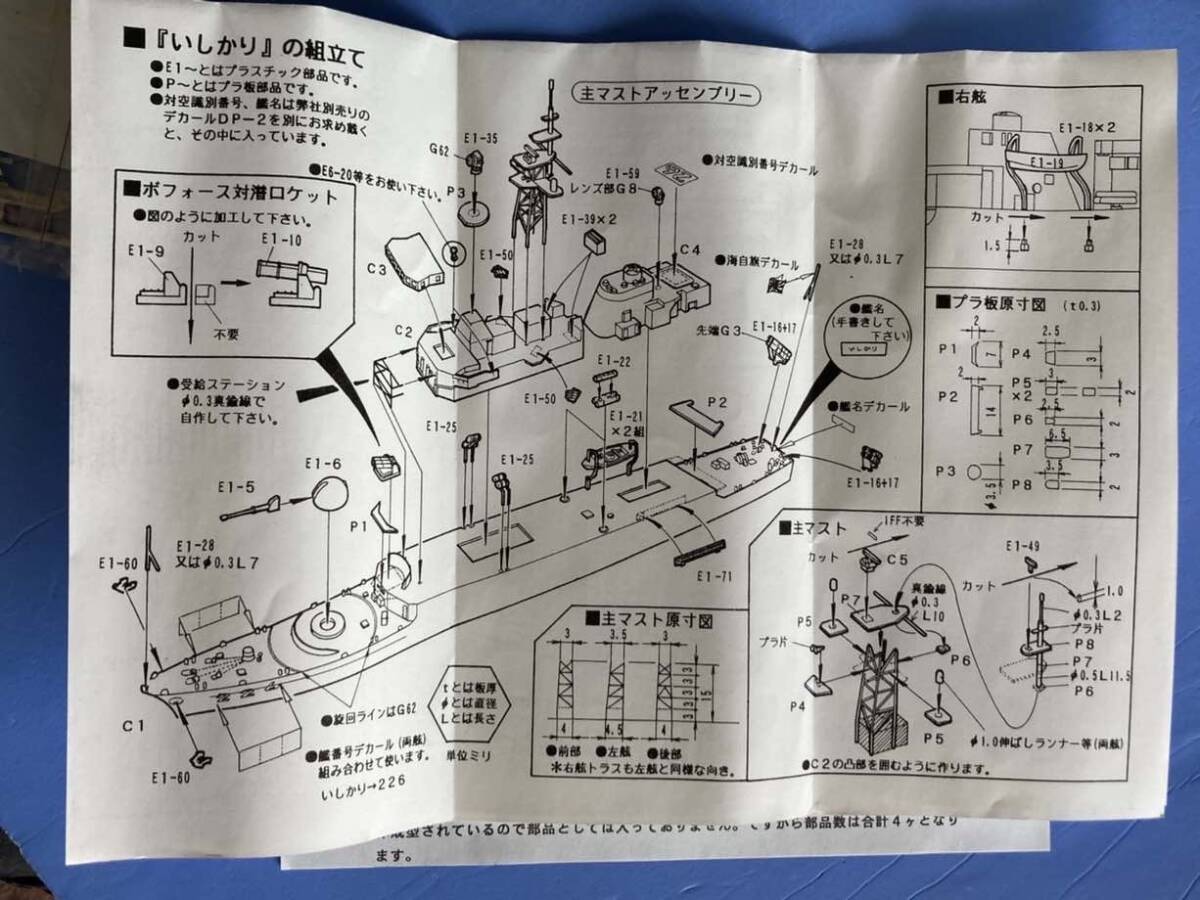 ■『いしかり』の組立て
●E1～とはプラスチック部品です。
●P～とはプラ板部品です。
●対空識別番号、艦名は弊社別売りの
デカールDP－2を別にお求め戴く
と、その中に入っています。
主マストアッセンブリー
■ボフォース対潜ロケット
●図のように加工して下さい。
カット
E1-9
E1-10
不要
●E6-20等をお使い下さい。
G62
E1-35
P3
E1-50
E1-39×2
E1-59
レンズ部G8
●対空識別番号デカール
C3
C2
C4
●海自旗デカール
E1-28
又はφ0.3L7
●艦名
(手書きして
下さい)
いしかり
先端G3
E1-16+17
●受給ステーション
φ0.3真鍮線で
自作して下さい。
E1-22
E1-50
E1-21
×2組
P2
●艦名デカール
E1-16+17
E1-25
E1-25
E1-6
E1-5
P1
E1-71
E1-28
又はφ0.3L7
E1-60
C1
E1-60
●旋回ラインはG62
●艦番号デカール(両舷)
組み合わせて使います。
いしかり→226
tとは板厚
φとは直径
Lとは長さ
単位ミリ
■主マスト原寸図
3
3.5
3
3
3
3
3
3
15
4
4.5
4
●前部
●左舷
●後部
＊右舷トラスも左舷と同様な向き。
■右舷
E1-18×2
E1-19
カット
1.5
■プラ板原寸図 (t0.3)
2
P1
7
2.5
P4
3
2
P2
14
P5
×2
3
2
P6
2.5
2
P7
6.5
3
P3
φ3.5
P8
3.5
2
■主マスト
IFF不要
カット
C5
P7
真鍮線
φ0.3
L10
P5
プラ片
P4
P6
P5
E1-49
カット
1.0
φ0.3L2
プラ片
P8
P7
φ0.5L11.5
P6
φ1.0伸ばしランナー等(両舷)
●C2の凸部を囲むように作ります。
成型されているので部品としては入っておりません。ですから部品数は合計4ケとなり
ます。